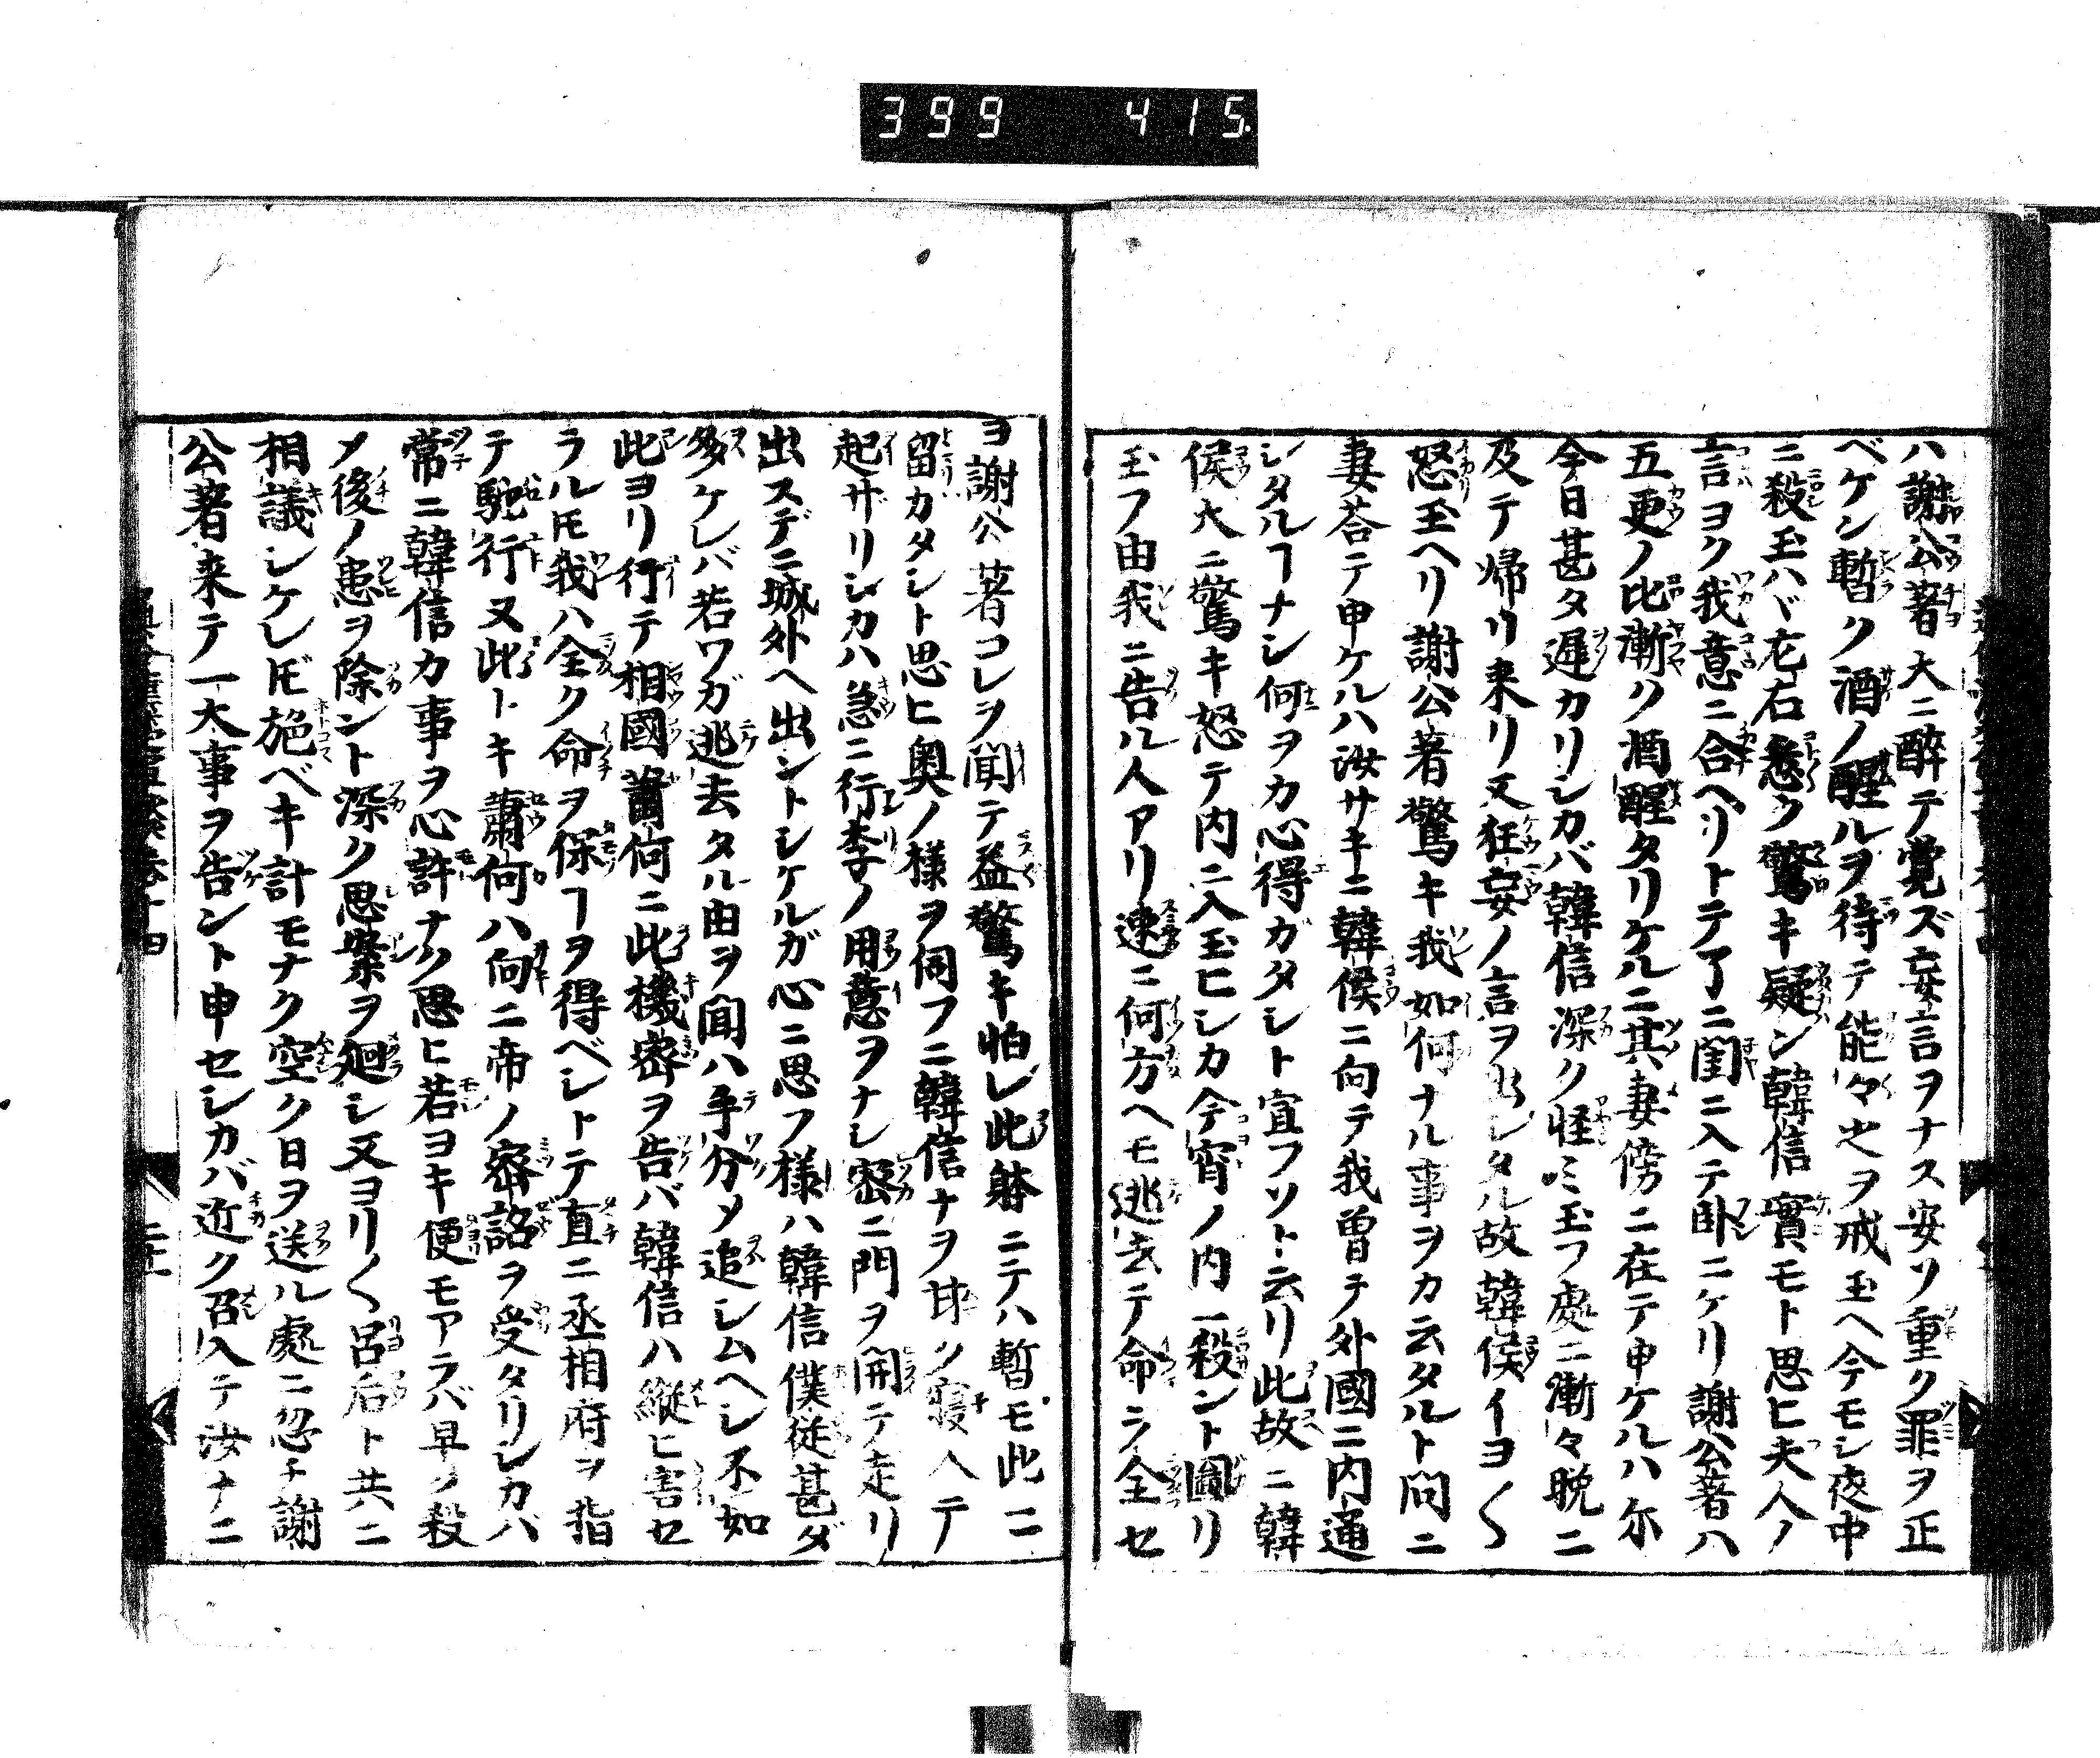 399 415
ハ謝公著大ニ醉テ覚ズ妄言ヲナス安ソ重ク罪ヲ正
ベケン暫ク酒ノ醒ルヲ待テ能々之ヲ戒玉ヘ今モシ夜中
ニ殺玉ハヾ左右悉ク驚キ疑ン韓信實モト思ヒ夫人ノ
言ヨク我意ニ合ヘリトテ了ニ閨ニ入テ卧ニケリ謝公著ハ
五更ノ比漸ク酒醒タリケルニ其妻傍ニ在テ申ケルハ尓
今日甚タ遲カリシカバ韓信深ク怪ミ玉フ處ニ漸々晩ニ
及テ帰リ来リ又狂妄ノ言ヲ出シタル故韓侯イヨ〱
怒玉ヘリ謝公著驚キ我如何ナル事ヲカ云タルト問ニ
妻荅テ申ケルハ汝サキニ韓侯ニ向テ我曽テ外國ニ内通
シタルヿナシ何ヲカ心得ガタシト宣フソト云リ此故ニ韓
侯大ニ驚キ怒テ内ニ入玉ヒシカ今宵ノ内ニ殺ント圖リ
玉フ由我ニ告ル人アリ速ニ何方ヘモ逃去テ命ヲ全セ
ヨ謝公著コレヲ聞テ益驚キ怕レ此躰ニテハ暫モ此ニ
留カタシト思ヒ奥ノ様ヲ伺フニ韓信ナヲ甘ク寝入テ
起ザリシカハ急ニ行李ノ用意ヲナシ密ニ門ヲ開テ走リ
出スデニ城外ヘ出ントシケルガ心ニ思フ様ハ韓信僕従甚ダ
多ケレバ若ワガ逃去タル由ヲ聞ハ手分メ追シムヘシ不如
此ヨリ行テ相國蕭何ニ此機密ヲ告バ韓信ハ縦ヒ害セ
ラルトモ我ハ全ク命ヲ保ヿヲ得ベシトテ直ニ丞相府ヲ指
テ馳行又此トキ蕭何ハ向ニ帝ノ密詔ヲ受タリシカバ
常ニ韓信カ事ヲ心許ナク思ヒ若ヨキ便モアラバ早ク殺
メ後ノ患ヲ除ント深ク思案ヲ廻シ又ヨリ〱呂后ト共ニ
相議シケレドモ施ベキ計モナク空ク日ヲ送ル處ニ忽チ謝
公著来テ一大事ヲ告ント申セシカバ近ク召入テ汝ナニ